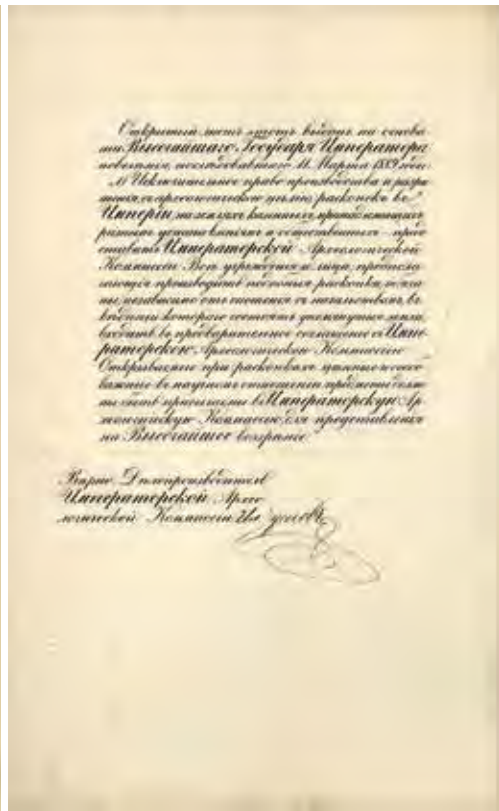 Открытый листъ этотъ выданъ на основа-
ніи Высочайшаго Государя Императора
повелѣнія, послѣдовавшаго 11 Марта 1889 года:
„1) Исключительное право производства и разрѣ-
шенія, съ археологическою цѣлью, раскопокъ въ
Имперіи, на земляхъ казенныхъ, принадлежащихъ
разнымъ установленіямъ и общественныхъ – предо-
ставить Императорской Археологической
Коммиссіи. Всѣ учрежденія и лица, предпола-
гающія производить подобныя раскопки, обяза-
ны, независимо отъ сношенія съ начальствами, въ
вѣдѣніи которыхъ состоятъ упомянутыя земли,
входить въ предварительное соглашеніе съ Импе-
раторскою Археологическою Коммиссіею.
Открываемые при раскопкахъ цѣнные и особо
важные въ научномъ отношеніи предметы долж-
ны быть присылаемы въ Императорскую Ар-
хеологическую Коммиссію, для представленія
на Высочайшее воззрѣніе.
Вѣрно: Дѣлопроизводитель
Императорской Архео-
логической Коммиссіи